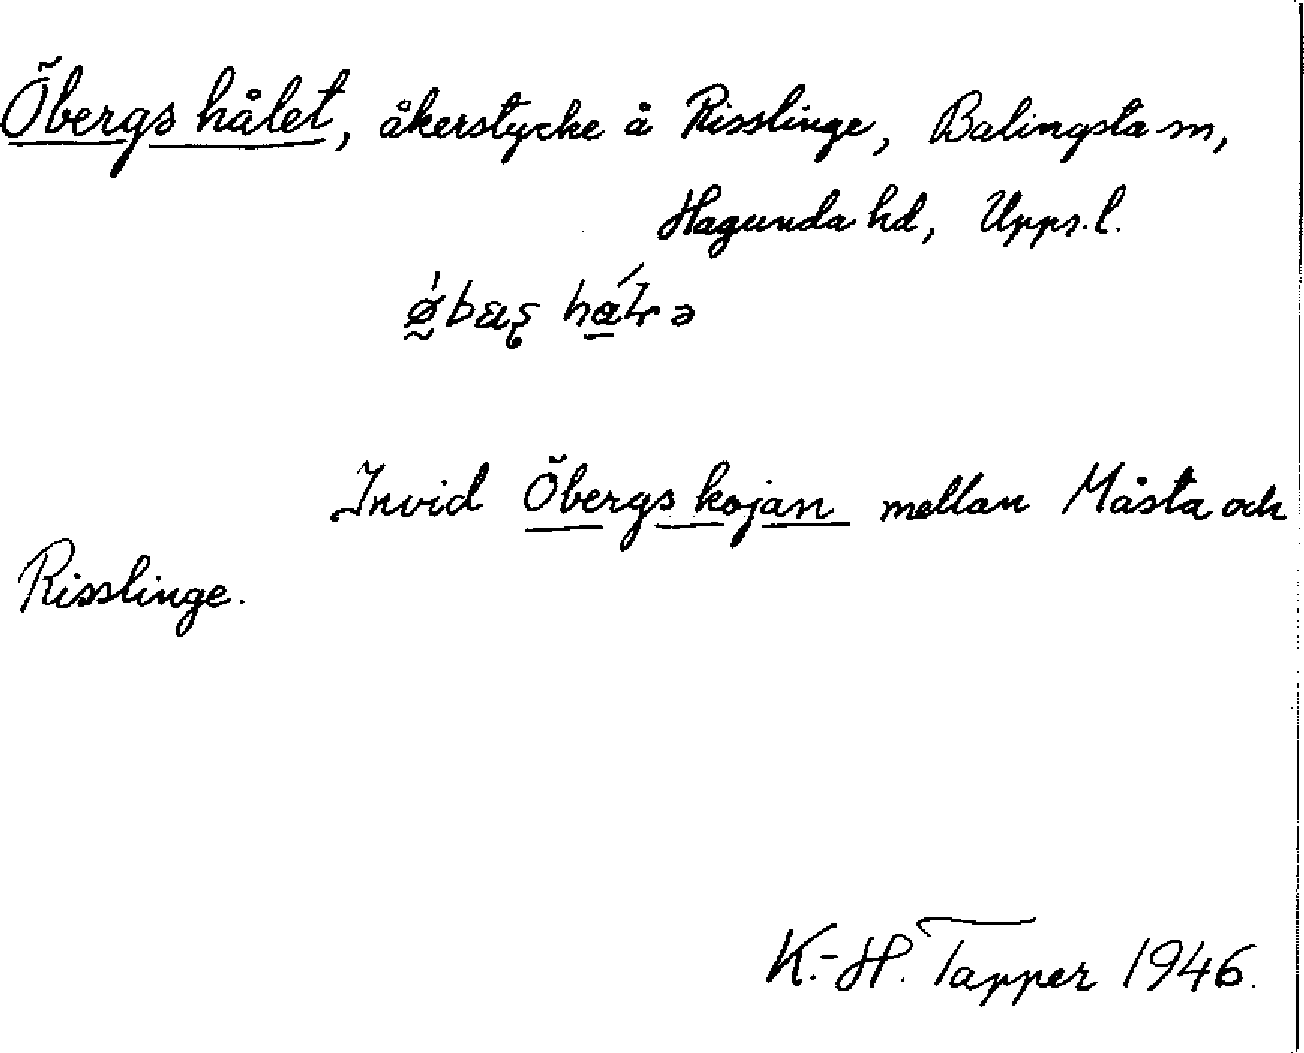 Öbergs hålet, åkerstycke å Risslinge, Balingsta sn,
Hagunda hd, Upps.l.
Invid Öbergs kojan mellan Måsta och
Risslinge.
K.-H. Tapper 1946.